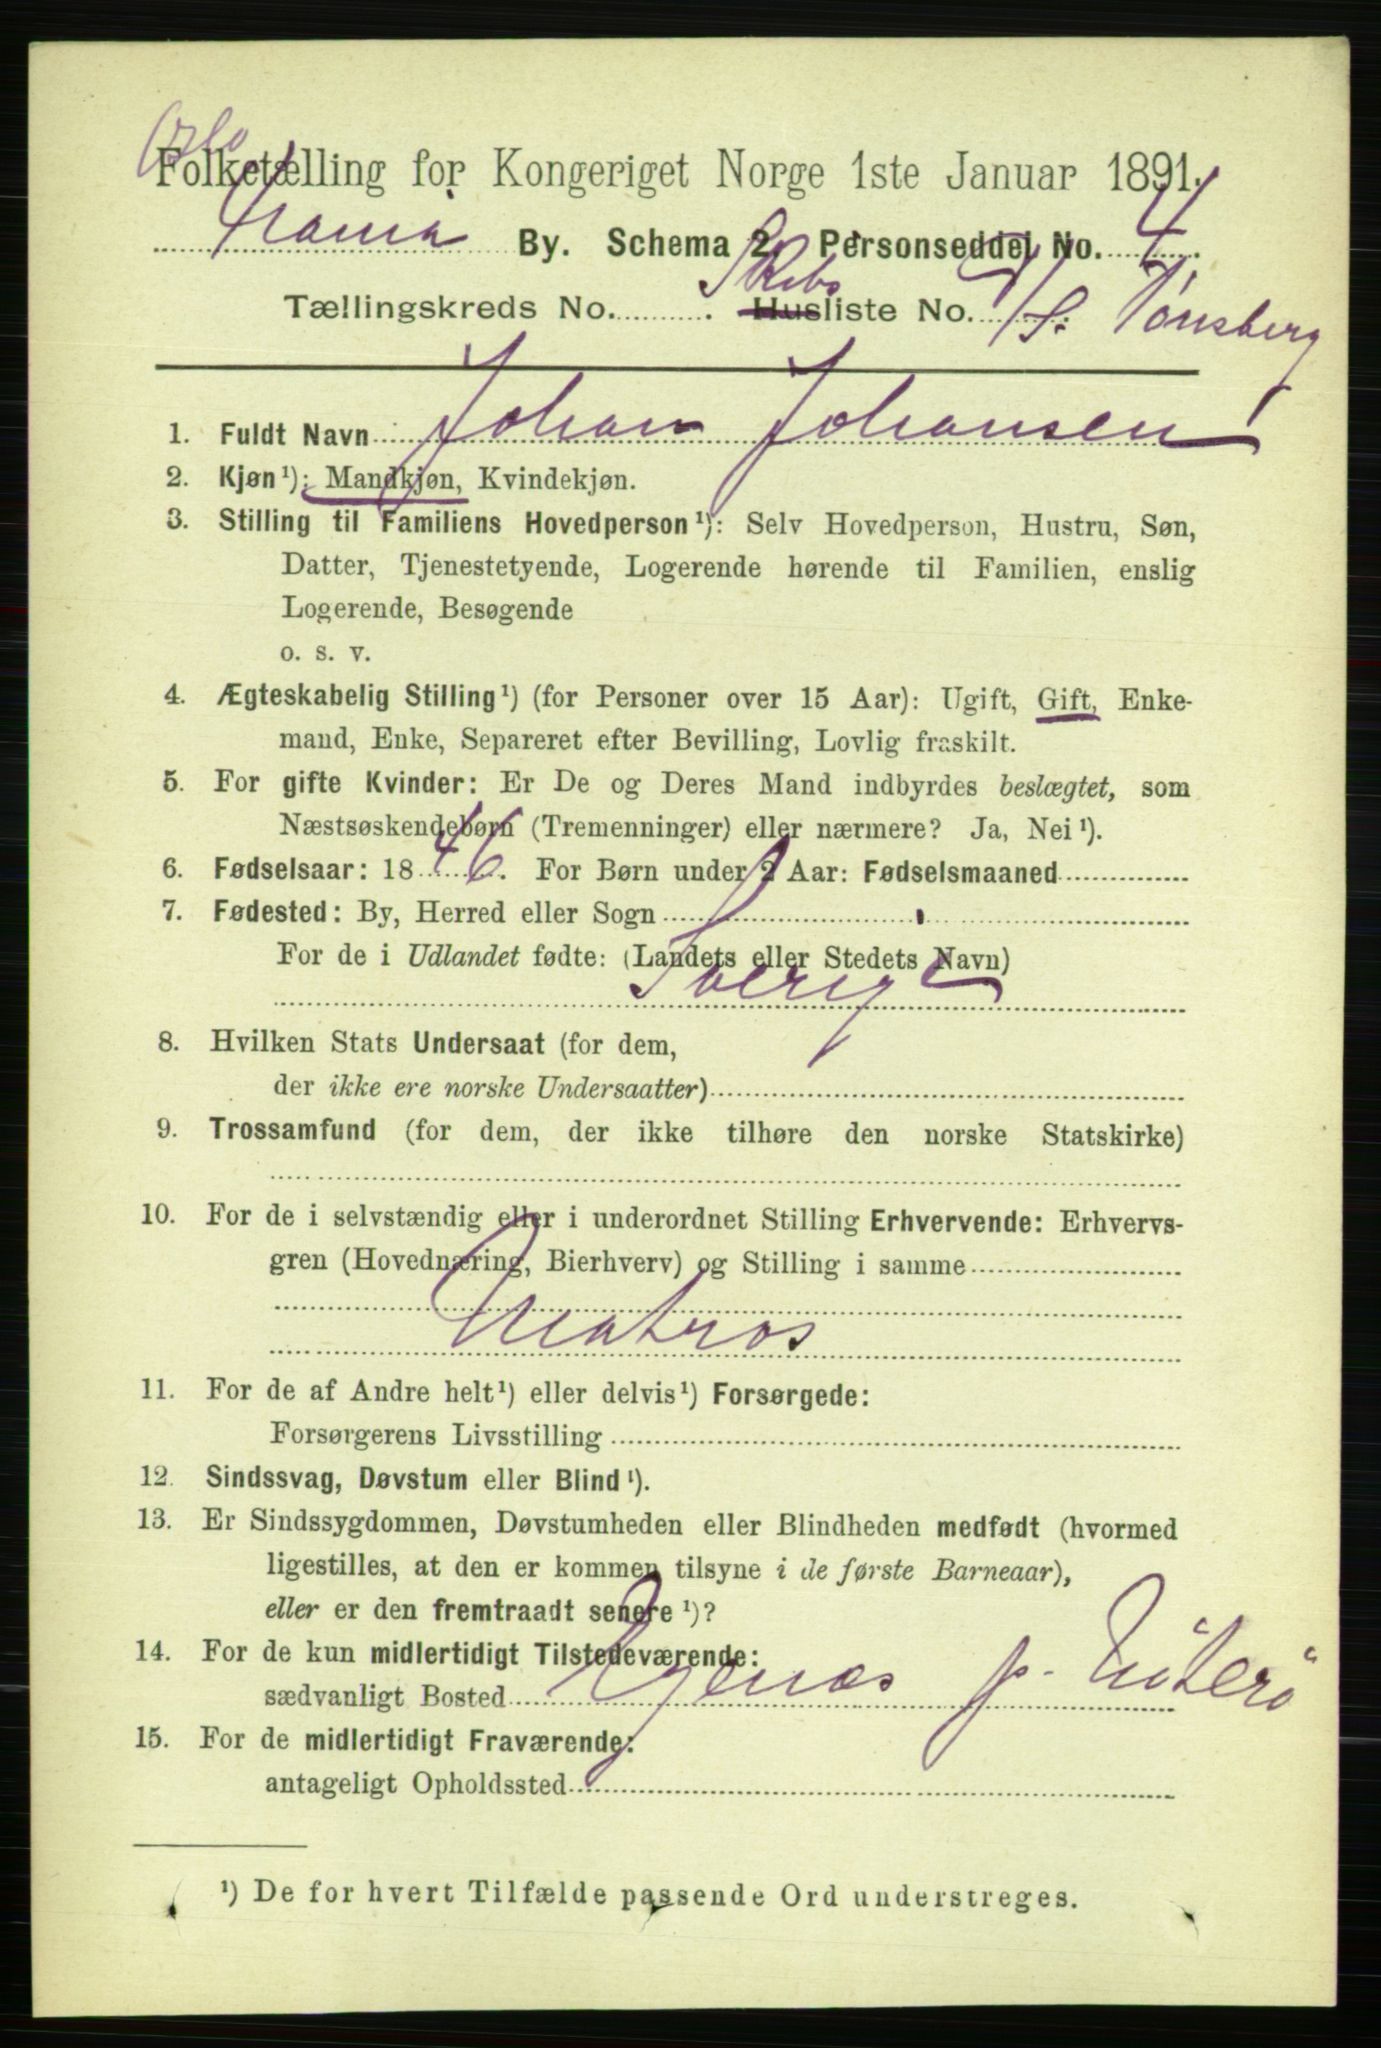 Folketælling for Kongeriget Norge 1ste Januar 1891.
By. Schema 2. Personseddel No. 4.
Tællingskreds No. . Skibsliste No. Tönsberg
1. Fuldt Navn Johan Johansen
2. Kjøn¹): Mandkjøn, Kvindekjøn.
3. Stilling til Familiens Hovedperson¹): Selv Hovedperson, Hustru, Søn,
Datter, Tjenestetyende, Logerende hørende til Familien, enslig
Logerende, Besøgende
o. s. v.
4. Ægteskabelig Stilling¹) (for Personer over 15 Aar): Ugift, Gift, Enke-
mand, Enke, Separeret efter Bevilling, Lovlig fraskilt.
5. For gifte Kvinder: Er De og Deres Mand indbyrdes beslægtet, som
Næstsøskendebørn (Tremenninger) eller nærmere? Ja, Nei¹).
6. Fødselsaar: 1846. For Børn under 2 Aar: Fødselsmaaned
7. Fødested: By, Herred eller Sogn
For de i Udlandet fødte: (Landets eller Stedets Navn)
Sverige
8. Hvilken Stats Undersaat (for dem,
der ikke ere norske Undersaatter)
9. Trossamfund (for dem, der ikke tilhøre den norske Statskirke)
10. For de i selvstændig eller i underordnet Stilling Erhvervende: Erhvervs-
gren (Hovednæring, Bierhverv) og Stilling i samme
Matros
11. For de af Andre helt¹) eller delvis¹) Forsørgede:
Forsørgerens Livsstilling
12. Sindssvag, Døvstum eller Blind¹).
13. Er Sindssygdommen, Døvstumheden eller Blindheden medfødt (hvormed
ligestilles, at den er kommen tilsyne i de første Barneaar),
eller er den fremtraadt senere¹)?
14. For de kun midlertidigt Tilstedeværende:
sædvanligt Bosted p. Nöterö
15. For de midlertidigt Fraværende:
antageligt Opholdssted
¹) De for hvert Tilfælde passende Ord understreges.